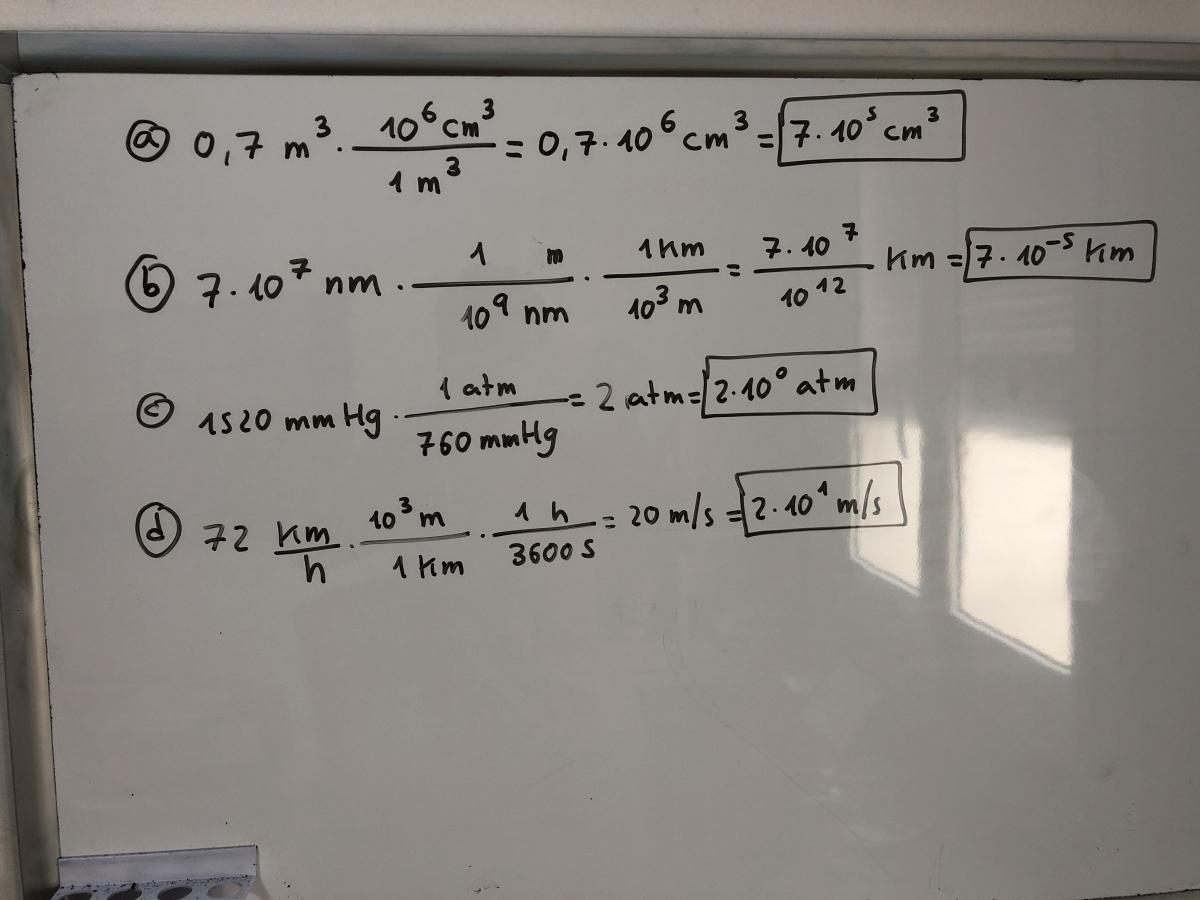 ⓐ 0,7 m³ · 10⁶ cm³ / 1 m³ = 0,7 · 10⁶ cm³ = 7 · 10⁵ cm³
ⓑ 7 · 10⁷ nm · 1 m / 10⁹ nm · 1 Km / 10³ m = 7 · 10⁷ / 10¹² Km = 7 · 10⁻⁵ Km
ⓒ 1520 mm Hg · 1 atm / 760 mmHg = 2 atm = 2 · 10⁰ atm
ⓓ 72 Km / h · 10³ m / 1 Km · 1 h / 3600 s = 20 m/s = 2 · 10¹ m/s